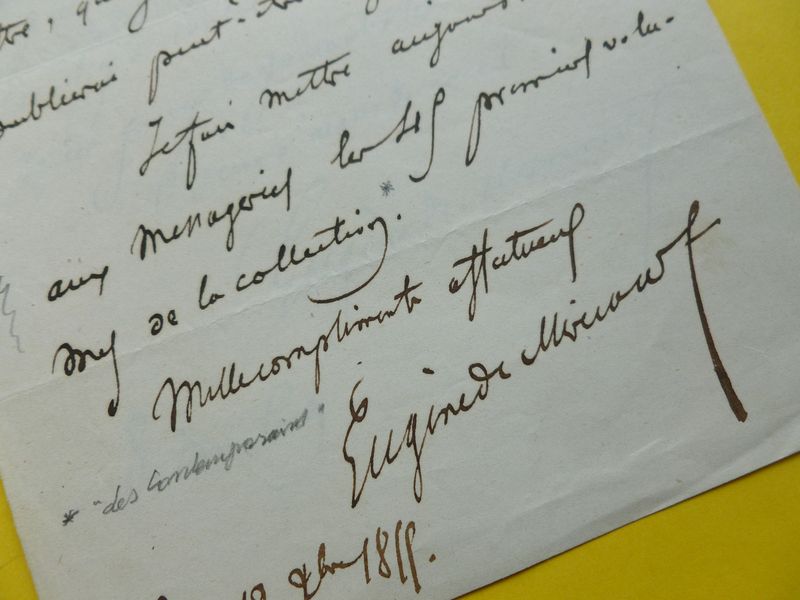 publierai peut-être
Je fais mettre aujourd
aux Messageries les 45 premiers volu-
mes de la collection.*
Mille compliments affectueux
Eugène de Mirecourt
* "des Contemporains".
18 xbre 1855.